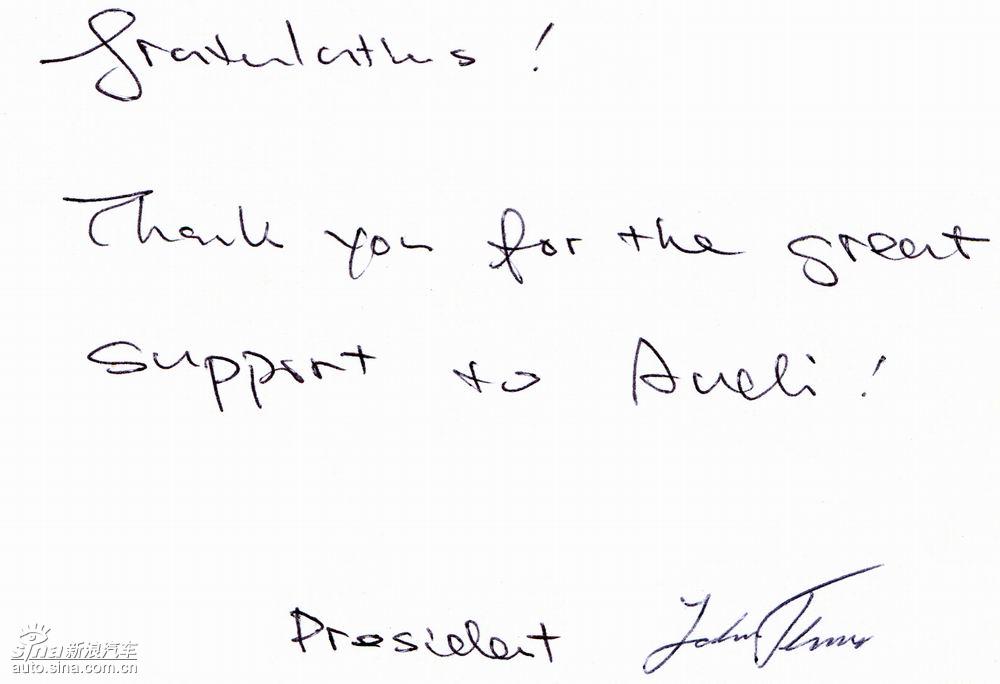 Gratulations!
Thank you for the great
support to Audi!
President
sina新浪汽车
auto.sina.com.cn